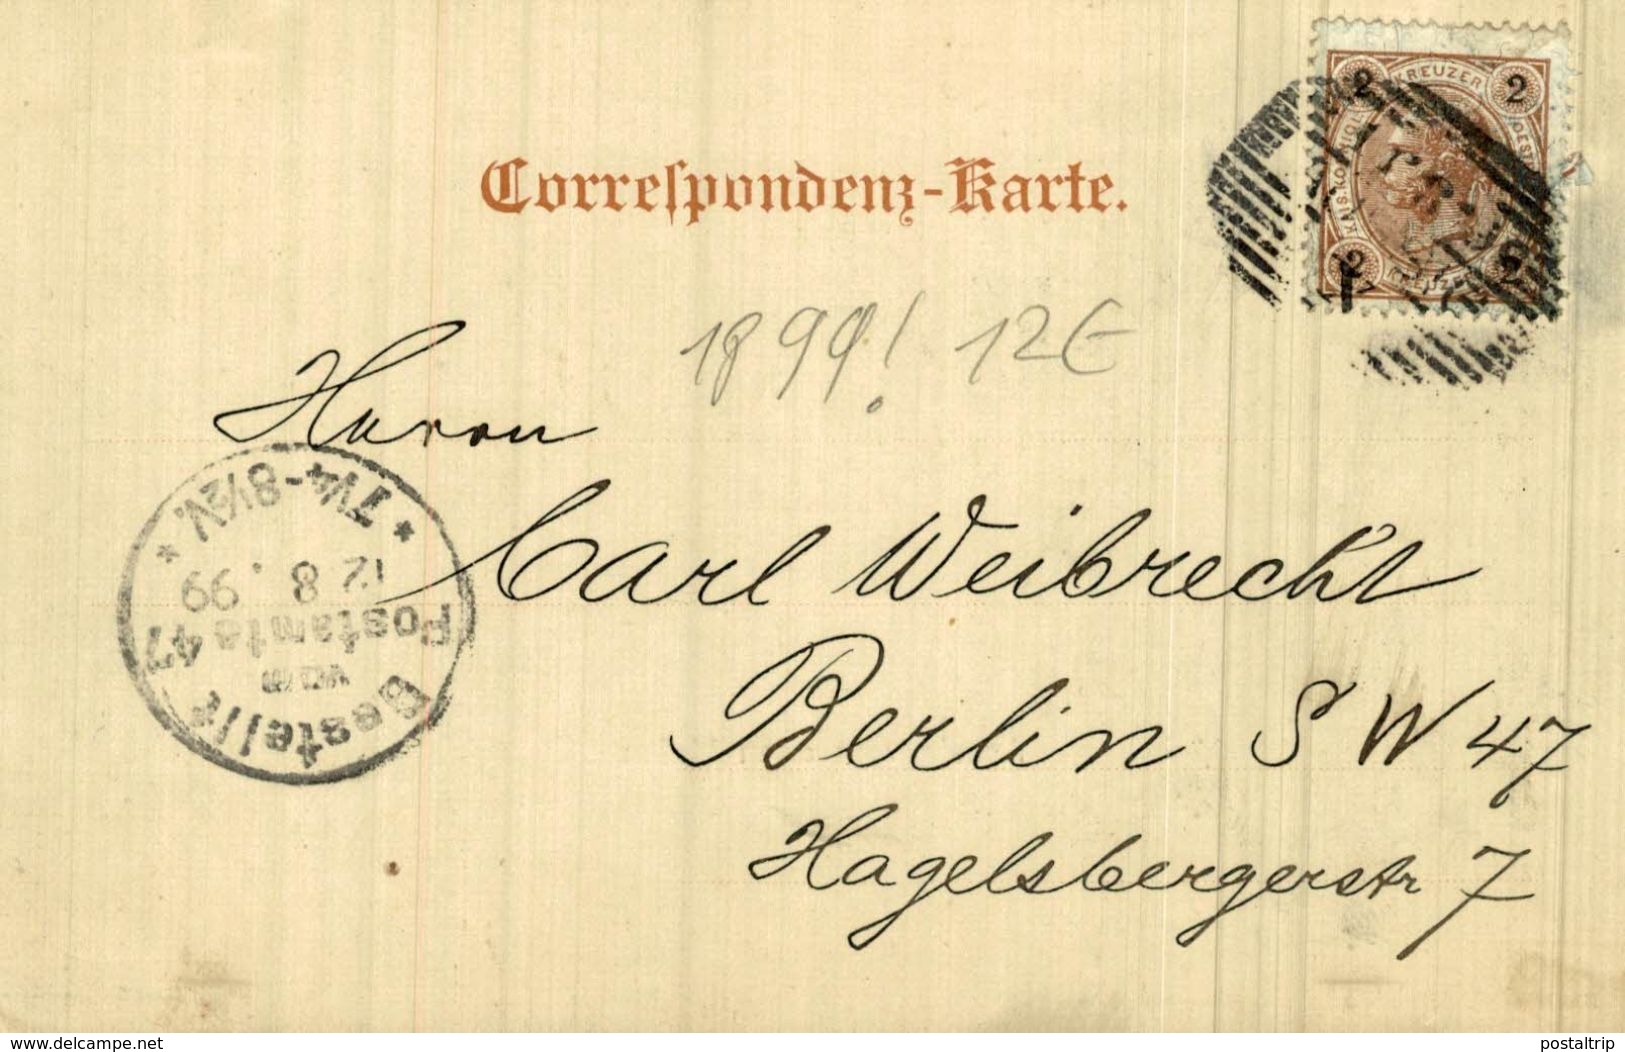 KREUZER
2 2
Correſpondenz-Karte.
2 2
1899! 12€
Herrn
Carl Weibrecht
Berlin S W 47
Hagelsbergerstr 7
Bestellt
vom
Postamte 47
12 8 . 99
* 7¼-8½V. *
www.delcampe.net
postaltrip